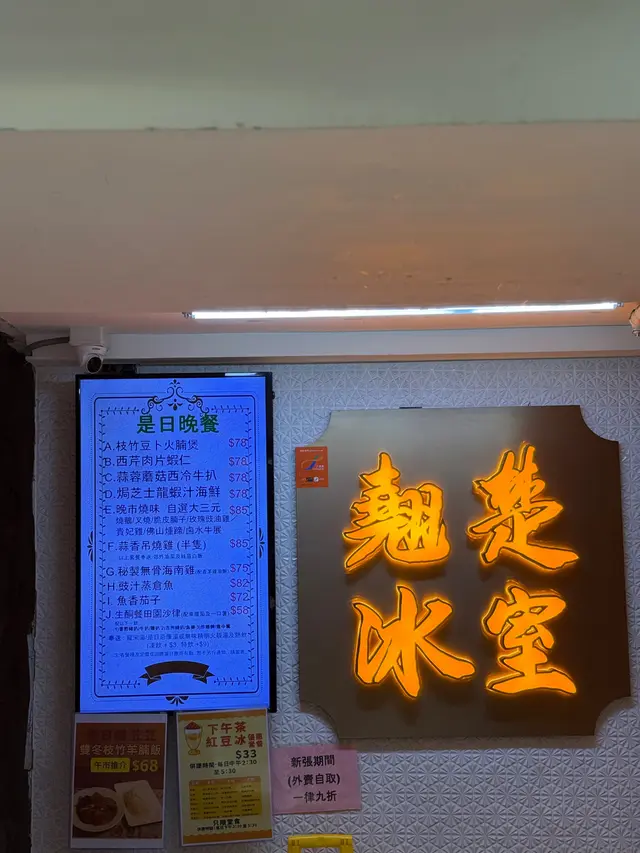 是日晚餐
A.枝竹豆卜火腩煲 $78
B.西芹肉片蝦仁 $78
C.蒜蓉蘑菇西冷牛扒 $78
D.焗芝士龍蝦汁海鮮 $78
E.晚市燒味 自選大三元 $85
燒鵝/叉燒/脆皮腩仔/玫瑰豉油雞
貴妃雞/佛山燻蹄/鹵水牛展
F.蒜香吊燒雞 (半隻) $85
G.秘製無骨海南雞 $75
H.豉汁蒸倉魚 $82
I.魚香茄子 $72
J.生酮餐田園沙律 $58
(凍飲+$3 特飲+$9)
雙冬枝竹羊腩飯
午市推介 $68
下午茶
紅豆冰
$33
至5:30
只限堂食
新張期間
(外賣自取)
一律九折
翹楚
冰室